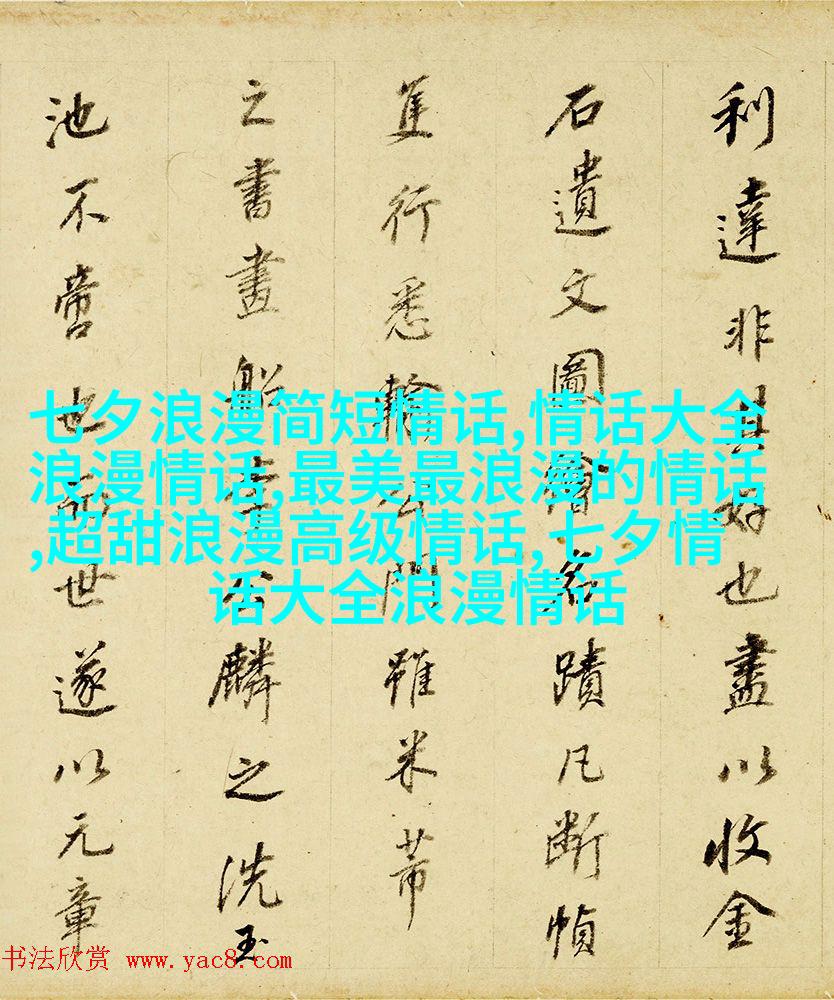 利達非其好也盡以收金
石遺文圖繪名蹟凡斷幀
隻行悉輸公門雖米芾
之書畫船李公麟之洗玉
池不啻也而世遂以元章
七夕浪漫简短情话,情话大全
浪漫情话,最美最浪漫的情话
,超甜浪漫高级情话,七夕情
话大全浪漫情话
书法欣赏 www.yac8.com